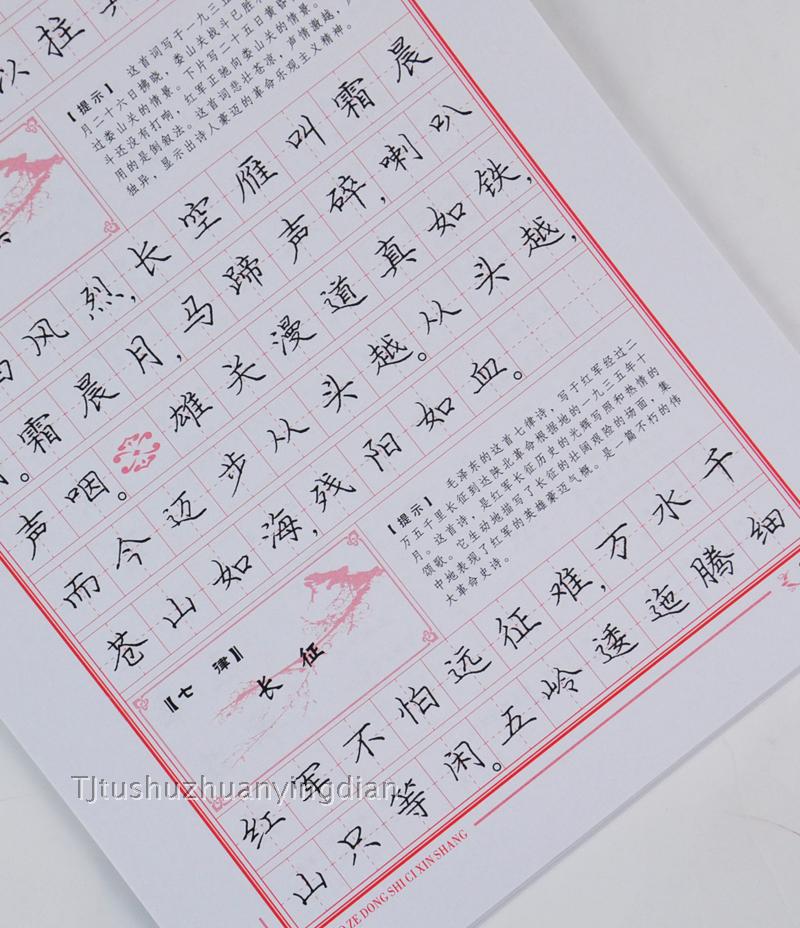 拄
【提示】 这首词写于一九三五
月二十六日拂晓，娄山关战斗已胜
过娄山关的情景。下片写二十五日黄昏
斗还没有打响，红军正驰向娄山关的情景。
用的是倒叙法。这首词悲壮苍凉，声情激越，
独异，显示出诗人豪迈的革命乐观主义精神。
西风烈，长空雁叫霜晨
月。霜晨月，马蹄声碎，喇叭
声咽。雄关漫道真如铁，
而今迈步从头越。从头越，
苍山如海，残阳如血。
《七律》
长征
【提示】 毛泽东的这首七律诗，写于红军经过二
万五千里长征到达陕北革命根据地的一九三五年十
月。这首诗，是红军长征历史的光辉写照和热情的
颂歌。它生动地描写了长征的壮阔艰险的场面，集
中地表现了红军的英雄豪迈气概。是一篇不朽的伟
大革命史诗。
红军不怕远征难，万水千
山只等闲。五岭逶迤腾细
ZE DONG SHI CI XIN SHANG
Tjtushuzhuanyingdian